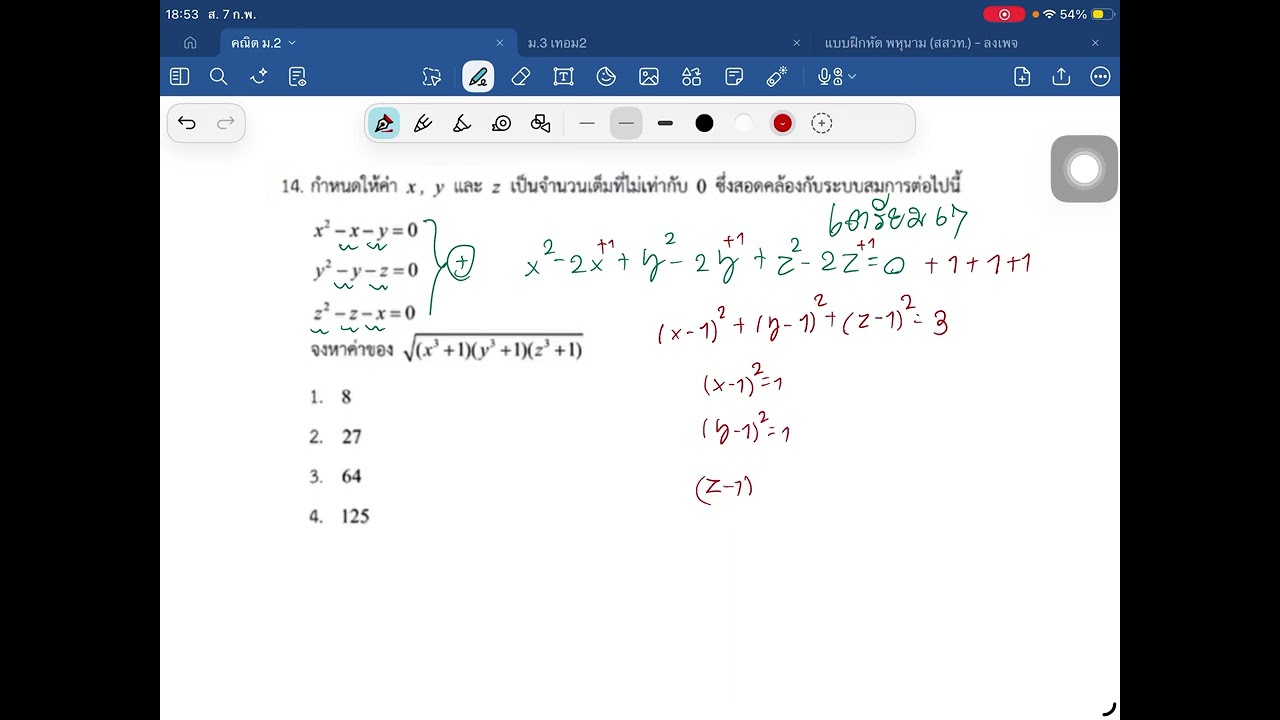 18:53 ส. 7 ก.พ.
54%
คณิต ม.2
ม.3 เทอม2
แบบฝึกหัด พหุนาม (สสวท.) – ลงเพจ
14. กำหนดให้ค่า x, y และ z เป็นจำนวนเต็มที่ไม่เท่ากับ 0 ซึ่งสอดคล้องกับระบบสมการต่อไปนี้
เตรียม 67
x² − x − y = 0
y² − y − z = 0
z² − z − x = 0
+
x² − 2x + y² − 2y + z² − 2z = 0 + 1 + 1 + 1
+1 +1 +1
(x−1)² + (y−1)² + (z−1)² = 3
จงหาค่าของ √((x³+1)(y³+1)(z³+1))
(x−1)² = 1
1. 8
(y−1)² = 1
2. 27
3. 64
(z−1)
4. 125